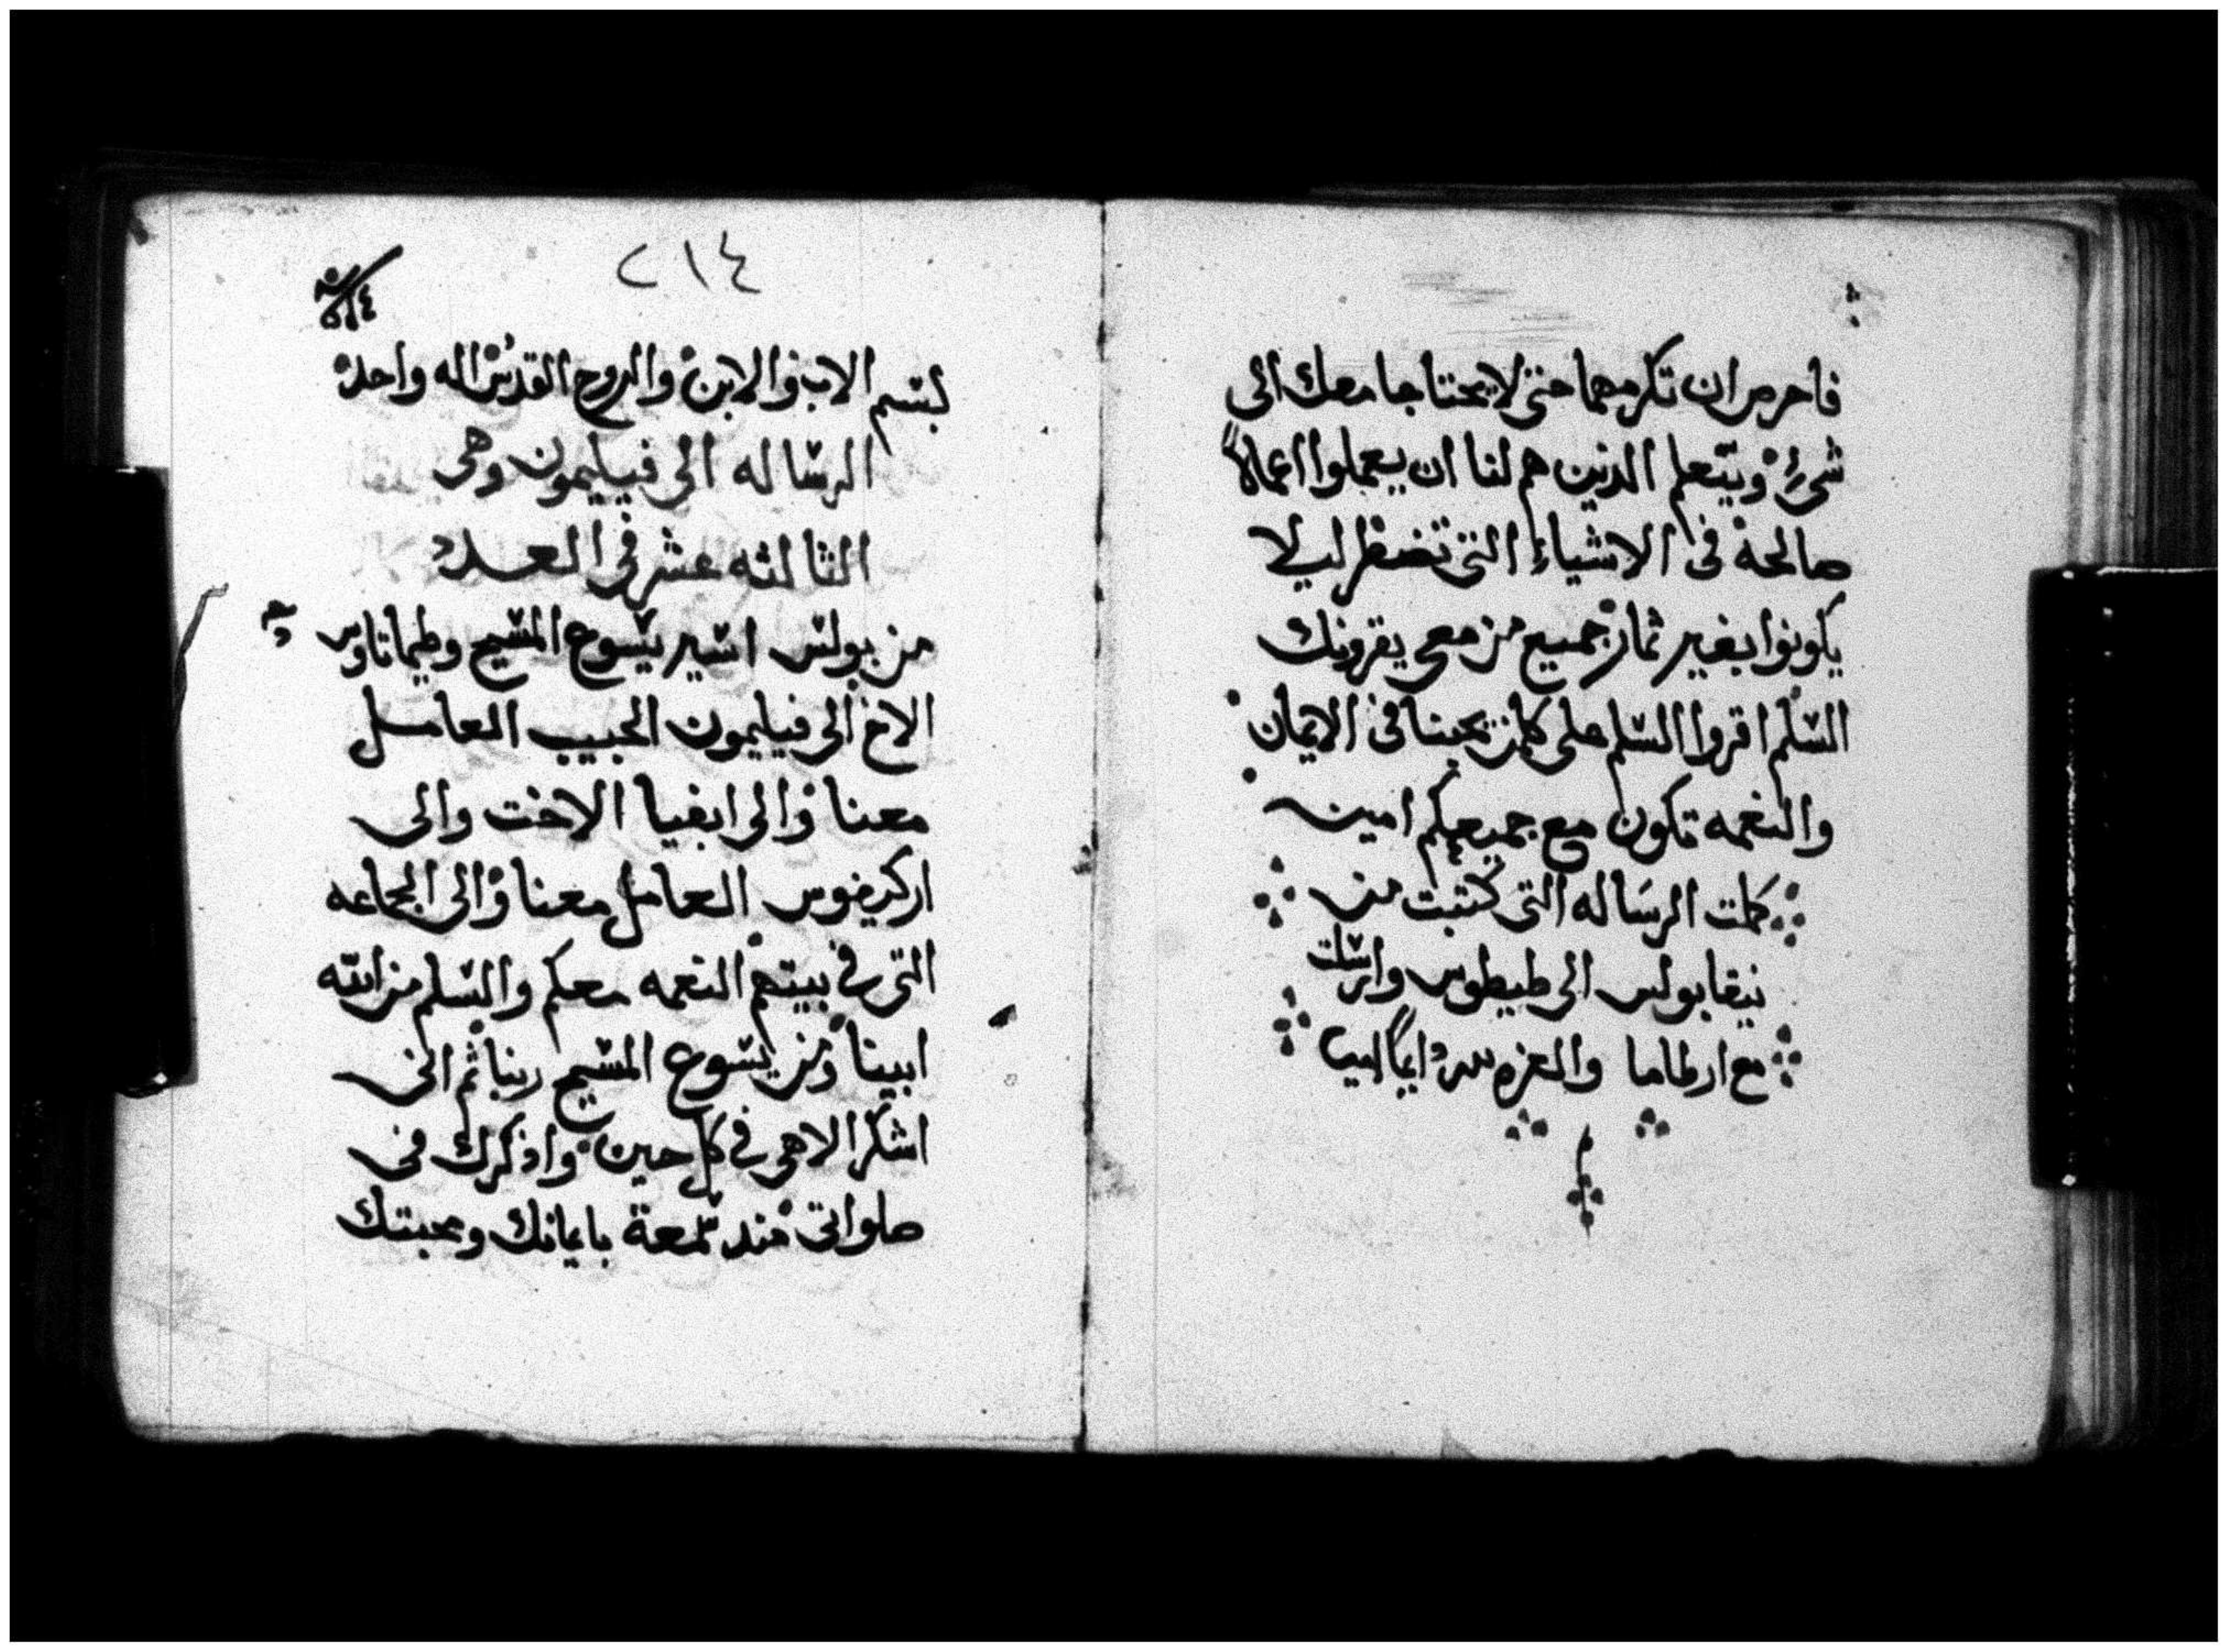 فاحرص ان تكرمهما حتى لا يحتاجا معك الى
شىء ويتعلم الذين هم لنا ان يعملوا اعمالا
صالحة فى الاشياء التى تضطر ليلا
يكونوا بغير ثمار جميع من معى يقرونك
السلم اقروا السلم على كلمن يحبنا فى الايمان
والنعمه تكون مع جميعكم امين
كملت الرساله التى كتبت من
نيقابولس الى طيطوس وارسلت
مع ارطاما والعزه لله دايما
٢١٤
بسم الاب والابن والروح القدس اله واحد
الرساله الى فيليمون وهى
الثالثه عشر فى العدد
من بولس اسير يسوع المسيح وطيماتاوس
الاخ الى فيليمون الحبيب العامل
معنا والى ابفيا الاخت والى
اركيفوس العامل معنا والى الجماعه
التى فى بيتهم النعمه معكم والسلم من الله
ابينا ومن يسوع المسيح ربنا ثم انى
اشكر الاهى فى كل حين واذكرك فى
صلواتى منذ سمعة بايمانك ومحبتك